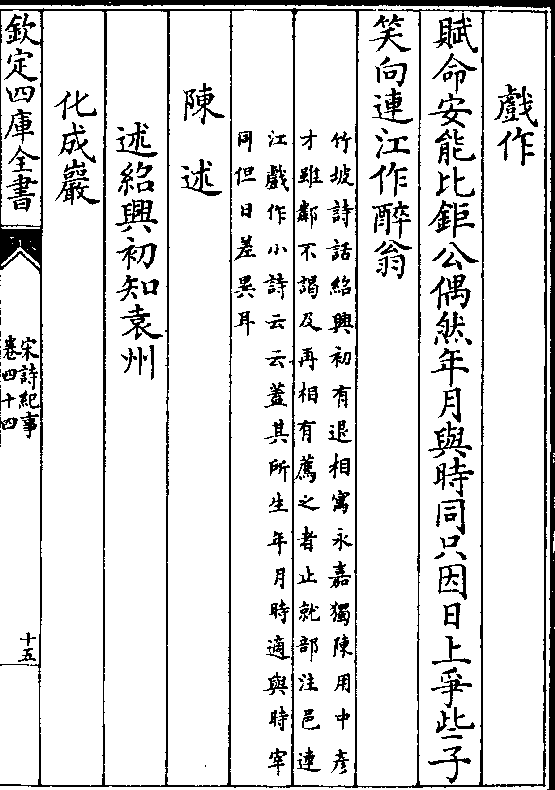 戲作
賦命安能比鉅公偶然年月與時同只因日上爭些子
笑向連江作醉翁
竹坡詩話紹興初有退相寓永嘉獨陳用中彥
才雖鄰不謁及再相有薦之者止就部注邑連
江戲作小詩云云蓋其所生年月時適與時宰
同但日差異耳
陳述
述紹興初知袁州
化成巖
欽定四庫全書
宋詩紀事
卷四十四
十五